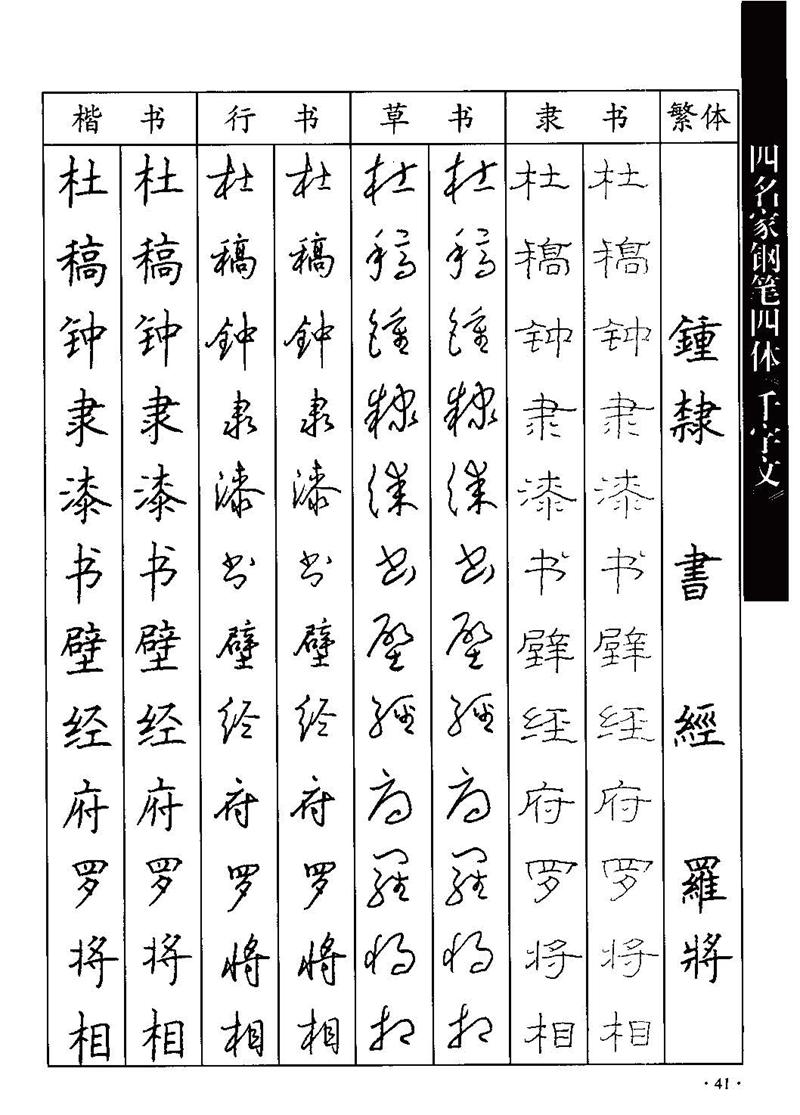 楷 书 行 书 草 书 隶 书 繁体
杜 杜 杜 杜 杜 杜 杜 杜
稿 稿 稿 稿 稿 稿 稿 稿
钟 钟 钟 钟 鍾 鍾 钟 钟 鍾
隶 隶 隶 隶 隸 隸 隶 隶 隸
漆 漆 漆 漆 漆 漆 漆 漆
书 书 书 书 书 书 书 书 書
壁 壁 壁 壁 壁 壁 壁 壁
经 经 经 经 經 經 经 经 經
府 府 府 府 府 府 府 府
罗 罗 罗 罗 羅 羅 罗 罗 羅
将 将 将 将 将 将 将 将 將
相 相 相 相 相 相 相 相
四名家钢笔四体《千字文》
·41·